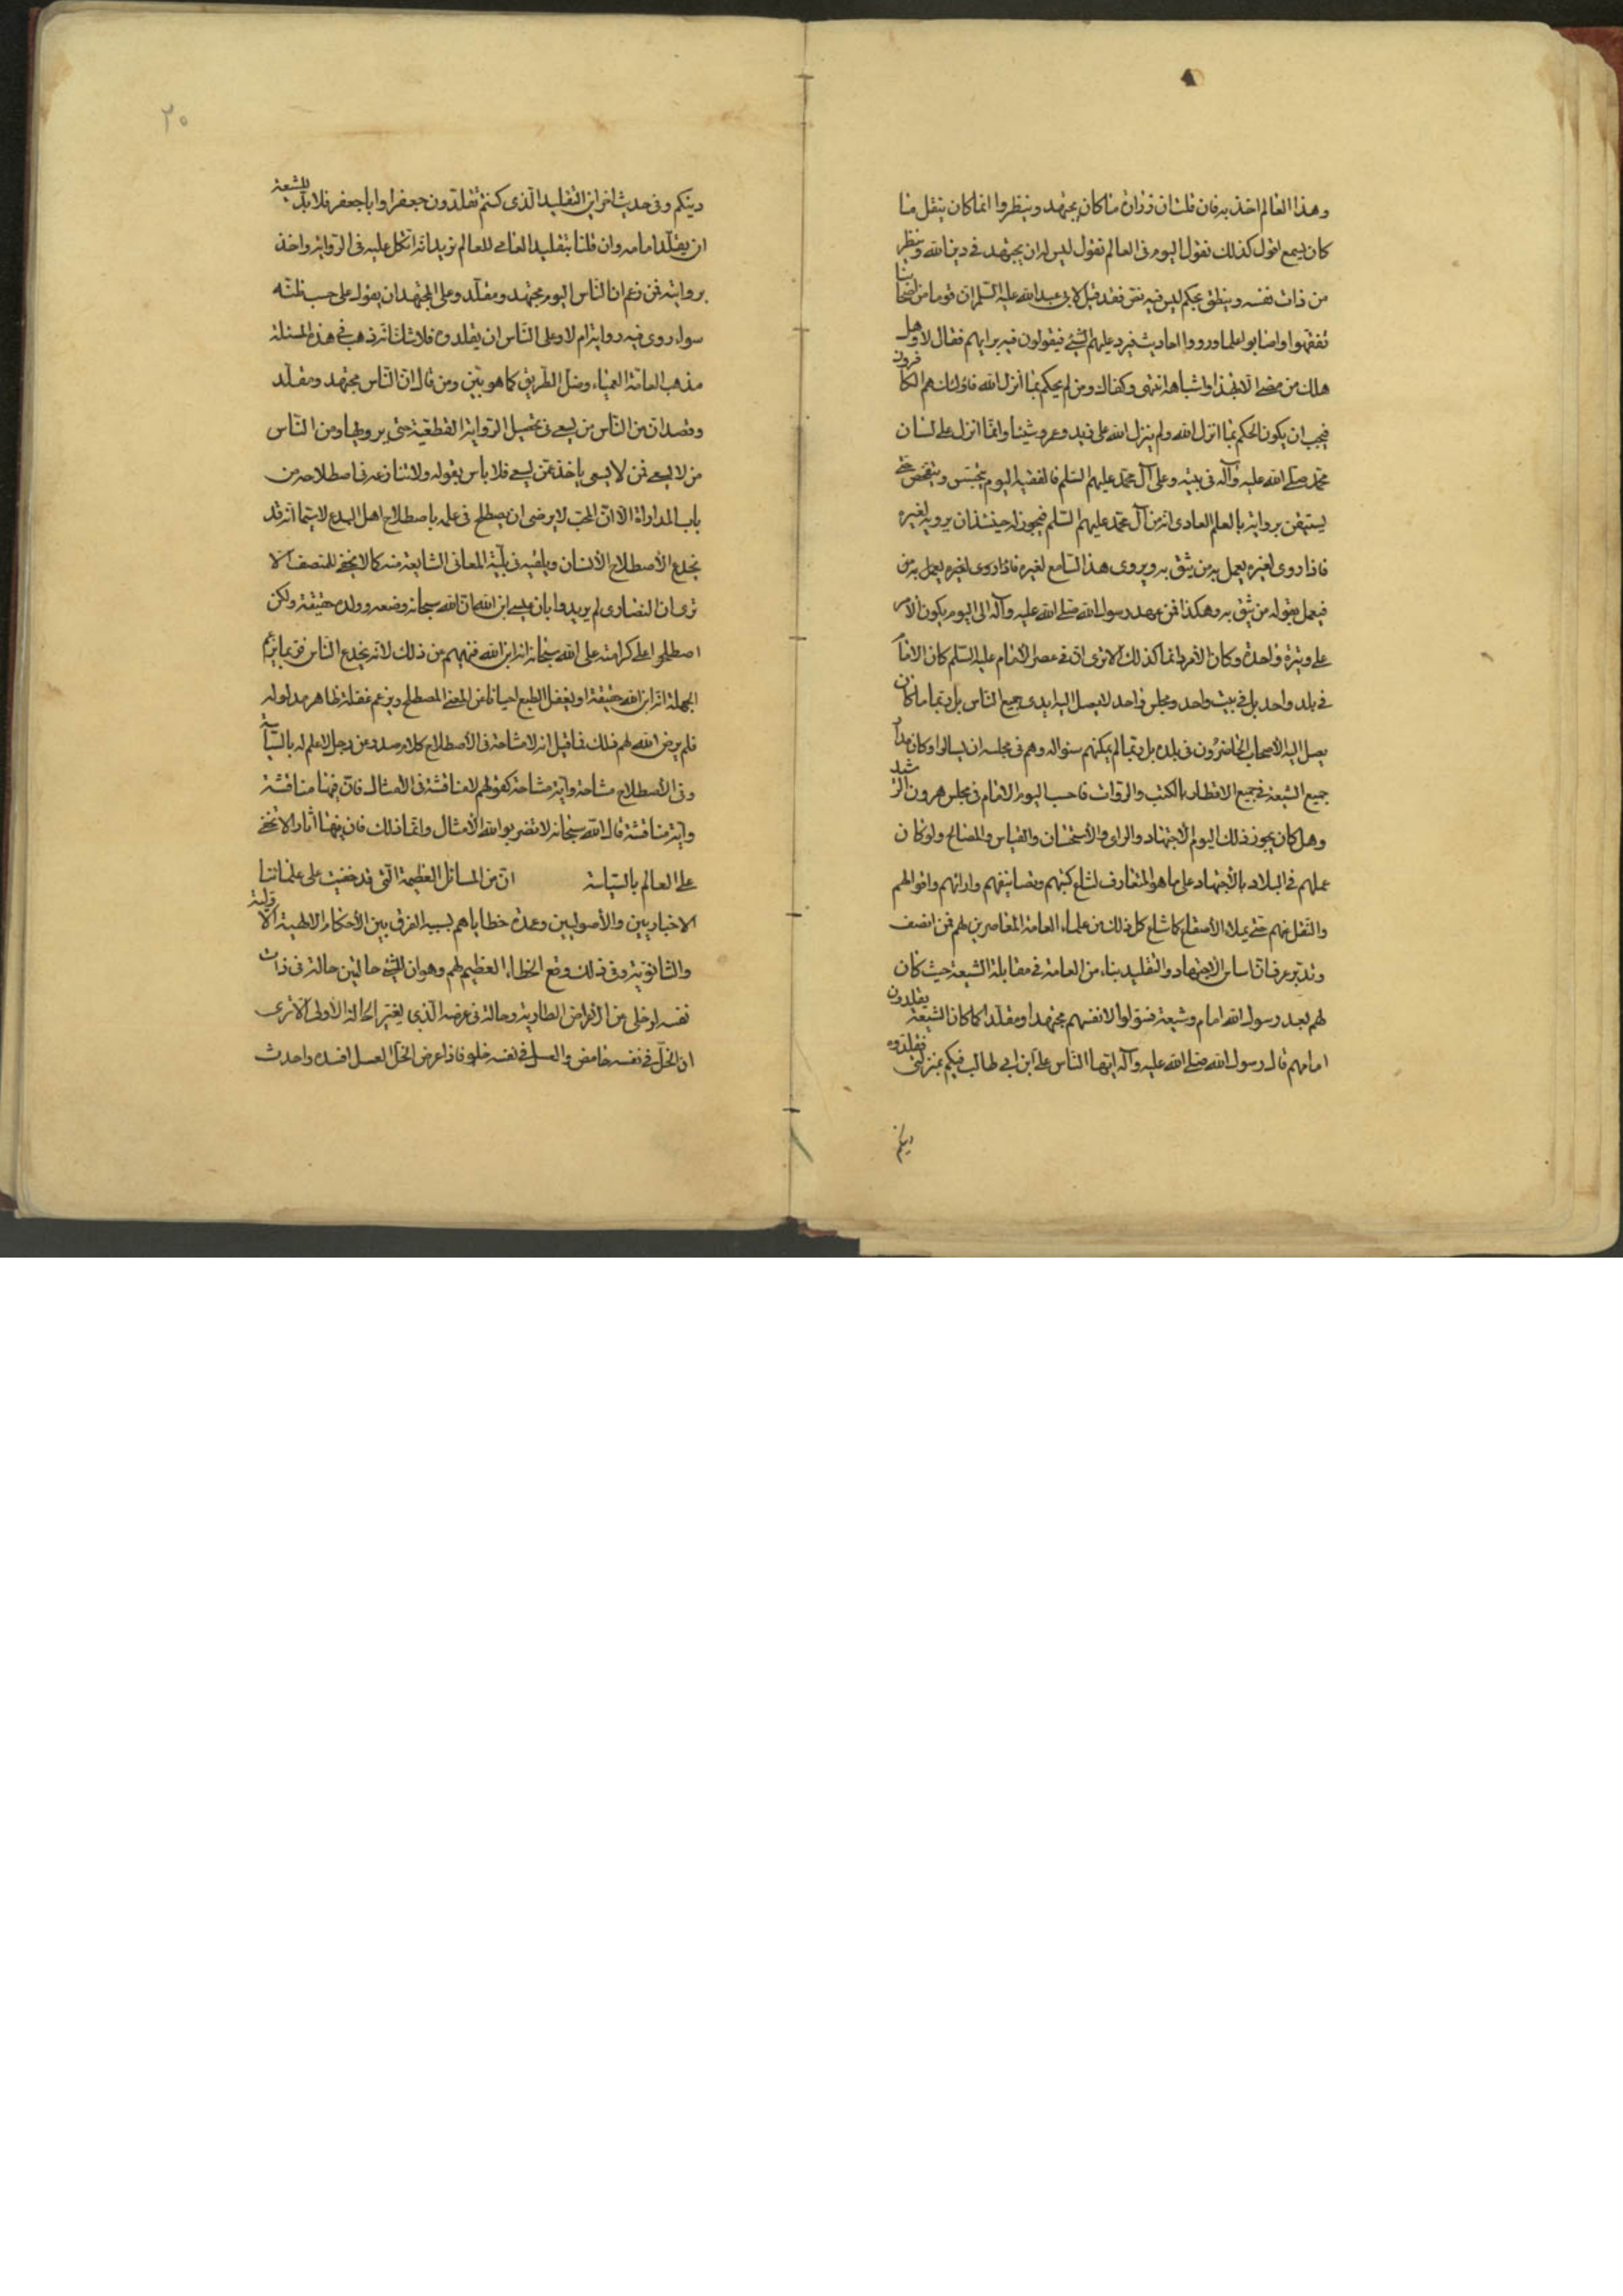 وهذا العالم اخذ به فان قلت ان زرارة ما كان يجتهد وينظر وانما كان ينقل ما
كان يسمع اقول كذلك نقول اليوم فى العالم نقول ليس له ان يجتهد فى دين الله وينظر
من ذات نفسه وينطق بحكم ليس فيه نص فقد قيل لابى عبد الله عليه السلم ان قوما من اصحابنا
تفقهوا واصابوا علما ورووا احاديث فيرد عليهم الشئ فيقولون فيه برايهم فقال لا وهل
هلك من مضى الا بهذا واشباهه انتهى وكفاك ومن لم يحكم بما انزل الله فاولئك هم الكافرون
فيجب ان يكون الحكم بما انزل الله ولم ينزل الله على زيد وعمرو شيئا وانما انزل على لسان
محمد صلى الله عليه وآله فى بيته وعلى آل محمد عليهم السلم فالفقيه اليوم يتجسس ويتفحص حتى
يستيقن برواية بالعلم العادى انه من آل محمد عليهم السلم فيجوز له حينئذ ان يرويه لغيره
فاذا روى لغيره يعمل به من يثق به ويروى هذا السامع لغيره فاذا روى لغيره يعمل به من
فيعمل بقوله من يثق به وهكذا فمن عهد رسول الله صلى الله عليه وآله الى اليوم يكون الامر
على وتيرة واحدة وكان الامر دائما كذلك الا ترى ان فى عصر الامام عليه السلم كان الامام
فى بلد واحد بل فى بيت واحد ومجلس واحد لا يصل اليه ايدى جميع الناس بل ربما ما كان
يصل اليه الاصحاب الحاضرون فى بلده بل ربما لم يمكنهم سؤاله وهم فى مجلسه ان يسالوا وكان مدار
جميع الشيعة فى جميع الاقطار بالكتب والروات فاحسب اليوم الامام فى مجلس هرون الرشيد
وهل كان يجوز ذلك اليوم الاجتهاد والراى والاستحسان والقياس والمصالح ولو كان
عملهم فى البلاد بالاجتهاد على ما هو المتعارف لشاع كتبهم وتصانيفهم وارائهم واقوالهم
والنقل عنهم حتى يملاء الاصقاع كما شاع كل ذلك من علماء العامة المعاصرين لهم فمن انصف
وتدبر عرف ان اساس الاجتهاد والتقليد بناء من العامة فى مقابلة الشيعة حيث كان
لهم بعد رسول الله امام وشيعة فسولوا لانفسهم مجتهدا ومقلدا كما كان الشيعة يقلدون
امامهم قال رسول الله صلى الله عليه وآله ايها الناس على ابن ابى طالب فيكم بمنزلتى فقلدوه
دينكم
٢٠
دينكم وفى حديث اخر اين التقليد الذى كنتم تقلدون جعفرا وابا جعفر فلا بد للشيعة
ان يقلد امامه وان قلنا بتقليد العامى للعالم نريد انه اتكل عليه فى الرواية واخذ
بروايته فمن زعم ان الناس اليوم مجتهد ومقلد وعلى المجتهد ان يقول على حسب ظنه
سواء روى فيه رواية ام لا وعلى الناس ان يقلدوه فلا شك انه ذهب فى هذه المسئلة
مذهب العامة العمياء وضل الطريق كما هو بين ومن قال ان الناس مجتهد ومقلد
وقصد ان من الناس من يسعى فى تحصيل الرواية القطعية حتى يرويها ومن الناس
من لا يسعى فمن لا يسعى ياخذ عمن يسعى فلا باس بقوله ولا ننازعه فى اصطلاحه من
باب المداراة الا ان المحب لا يرضى ان يصطلح فى علمه باصطلاح اهل البدع لا سيما انه قد
يخدع الاصطلاح الانسان ويلقيه فى بلية المعانى الشايعة منه كما لا يخفى للمنصف الا
ترى ان النصارى لم يريدوا بان عيسى ابن الله ان الله سبحانه وضعه وولده حقيقة ولكن
اصطلحوا على كرامته على الله سبحانه انه ابن الله فنهيهم عن ذلك لانه يخدع الناس فربما يزعم
الجهلة انه ابن الله حقيقة او يغفل الطبع احيانا عن المعنى المصطلح ويزعم غفلة ظاهر مدلوله
فلم يرض الله لهم فلك فما قيل انه لا مشاحة فى الاصطلاح كلام صدر عن رجل لا علم له بالسياسة
وفى الاصطلاح مشاحة واية مشاحة كقولهم لا مناقشة فى الامثال فان فيها مناقشة
واية مناقشة قال الله سبحانه لا تضربوا لله الامثال وانما ذلك فان فيها آثارا لا تخفى
على العالم بالسياسة ان من المسائل العظيمة التى قد خفيت على علمائنا
الاخباريين والأصوليين وعمدة خطاياهم بسبب الفرق بين الأحكام الالهية الاولية
والثانوية وفى ذلك وقع الخطاء العظيم لهم وهو ان للشئ حالتين حالة فى ذات
نفسه لو خلى عن الاعراض الطارية وحالة فى عرضه الذى يغير الحالة الاولى الا ترى
ان الخل فى نفسه حامض والعسل فى نفسه حلو فاذا عرض الخل العسل افسده واحدث